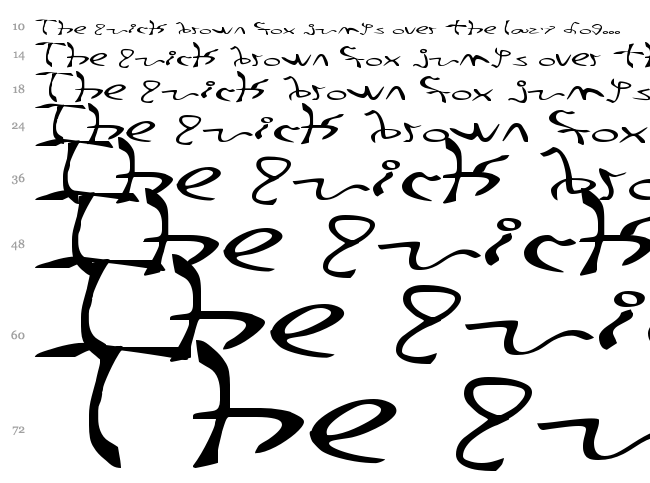 10 The quick brown fox jumps over the lazy dog...
14 The quick brown fox jumps over th
18 The quick brown fox jumps
24 The quick brown fox
36 The quick bro
48 The quick
60 The qui
72 The qu